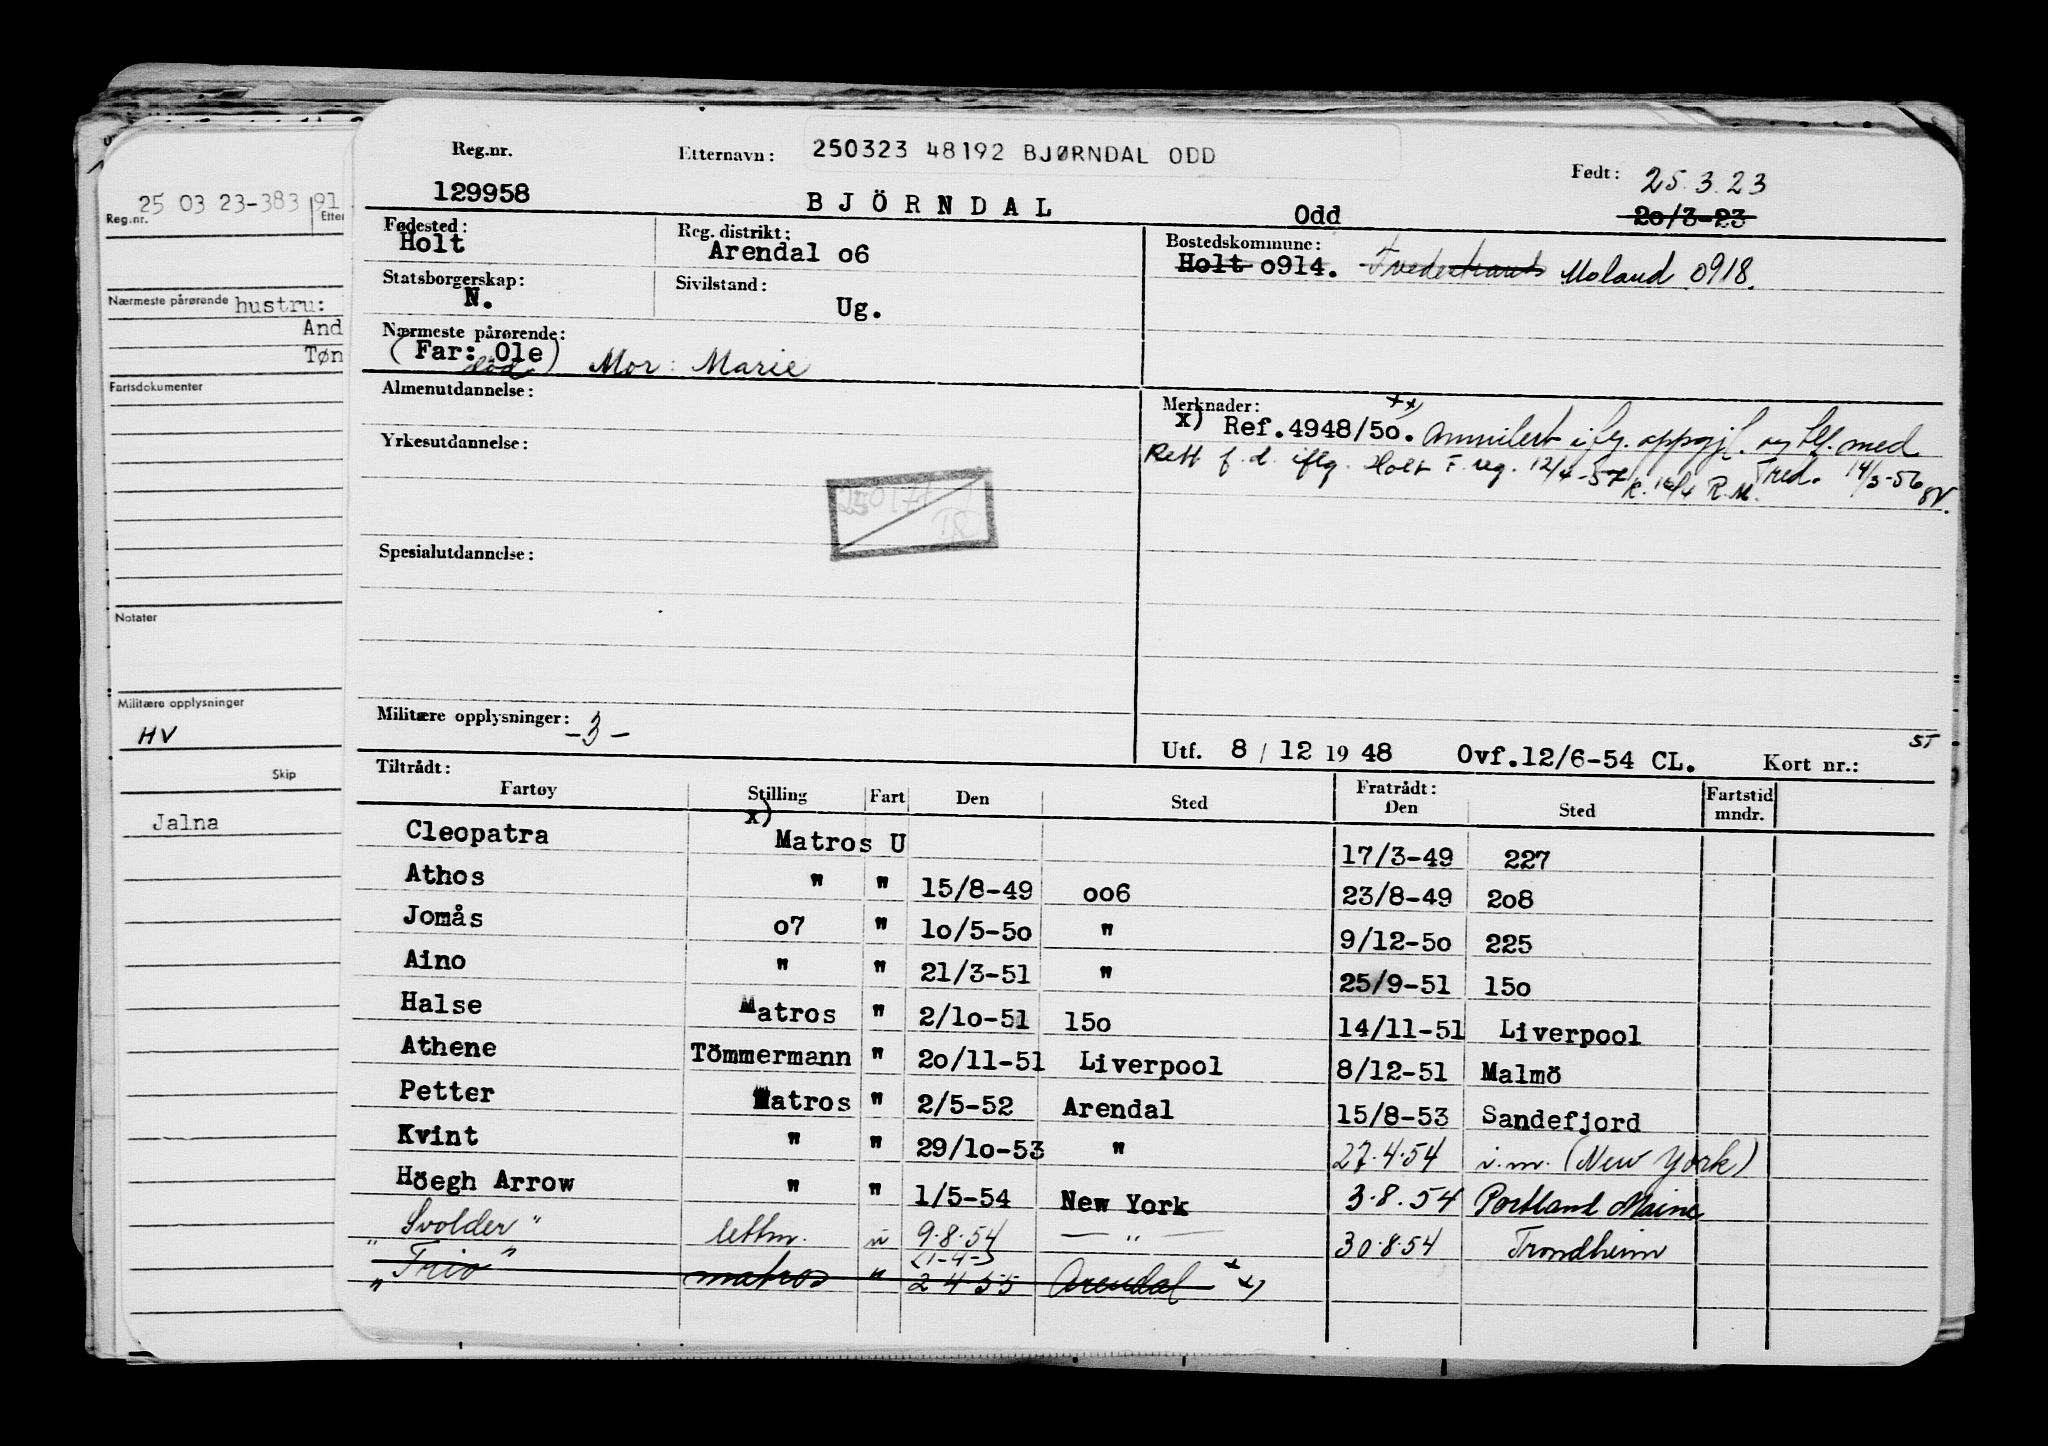 25 03 23-383 91
Reg.nr. Etter
Nærmeste pårørende hustru:
And
Tøn
Fartsdokumenter
Notater
Militære opplysninger
HV
Skip
Jalna
Reg.nr. Etternavn: 250323 48192 BJØRNDAL ODD Født: 25.3.23
129958 BJÖRNDAL Odd 20/3-23
Fødested: Reg. distrikt: Bostedskommune:
Holt Arendal o6 Holt o914. Tvedestrand Moland 0918.
Statsborgerskap: Sivilstand:
N. Ug.
Nærmeste pårørende:
(Far: Ole) Mor: Marie
død
Almenutdannelse: Merknader: xx)
x) Ref.4948/5o. Annulert iflg. oppgj. og tlf. med
Yrkesutdannelse: Rett f.d. iflg. Holt F.reg. 12/4-57 K. 16/4 R.M. Tred. 14/3-56
Spesialutdannelse:
Militære opplysninger: -3-
Utf. 8 / 12 19 48 Ovf.12/6-54 CL. Kort nr.: ST
Tiltrådt: Fratrådt:
Fartøy Stilling Fart Den Sted Den Sted Fartstid mndr.
Cleopatra x) Matros U 17/3-49 227
Athos " " 15/8-49 oo6 23/8-49 2o8
Jomås o7 " 1o/5-5o " 9/12-5o 225
Aino " " 21/3-51 " 25/9-51 15o
Halse Matros " 2/1o-51 15o 14/11-51 Liverpool
Athene Tömmermann " 2o/11-51 Liverpool 8/12-51 Malmö
Petter Matros " 2/5-52 Arendal 15/8-53 Sandefjord
Kvint " " 29/1o-53 " 27.4.54 i.m. (New York)
Höegh Arrow " " 1/5-54 New York 3.8.54 Portland Maine
"Svolder" lettm. u 9.8.54 — " — 30.8.54 Trondheim
(1-4-)
"Trio" matros " 2 4 55 Arendal xx)